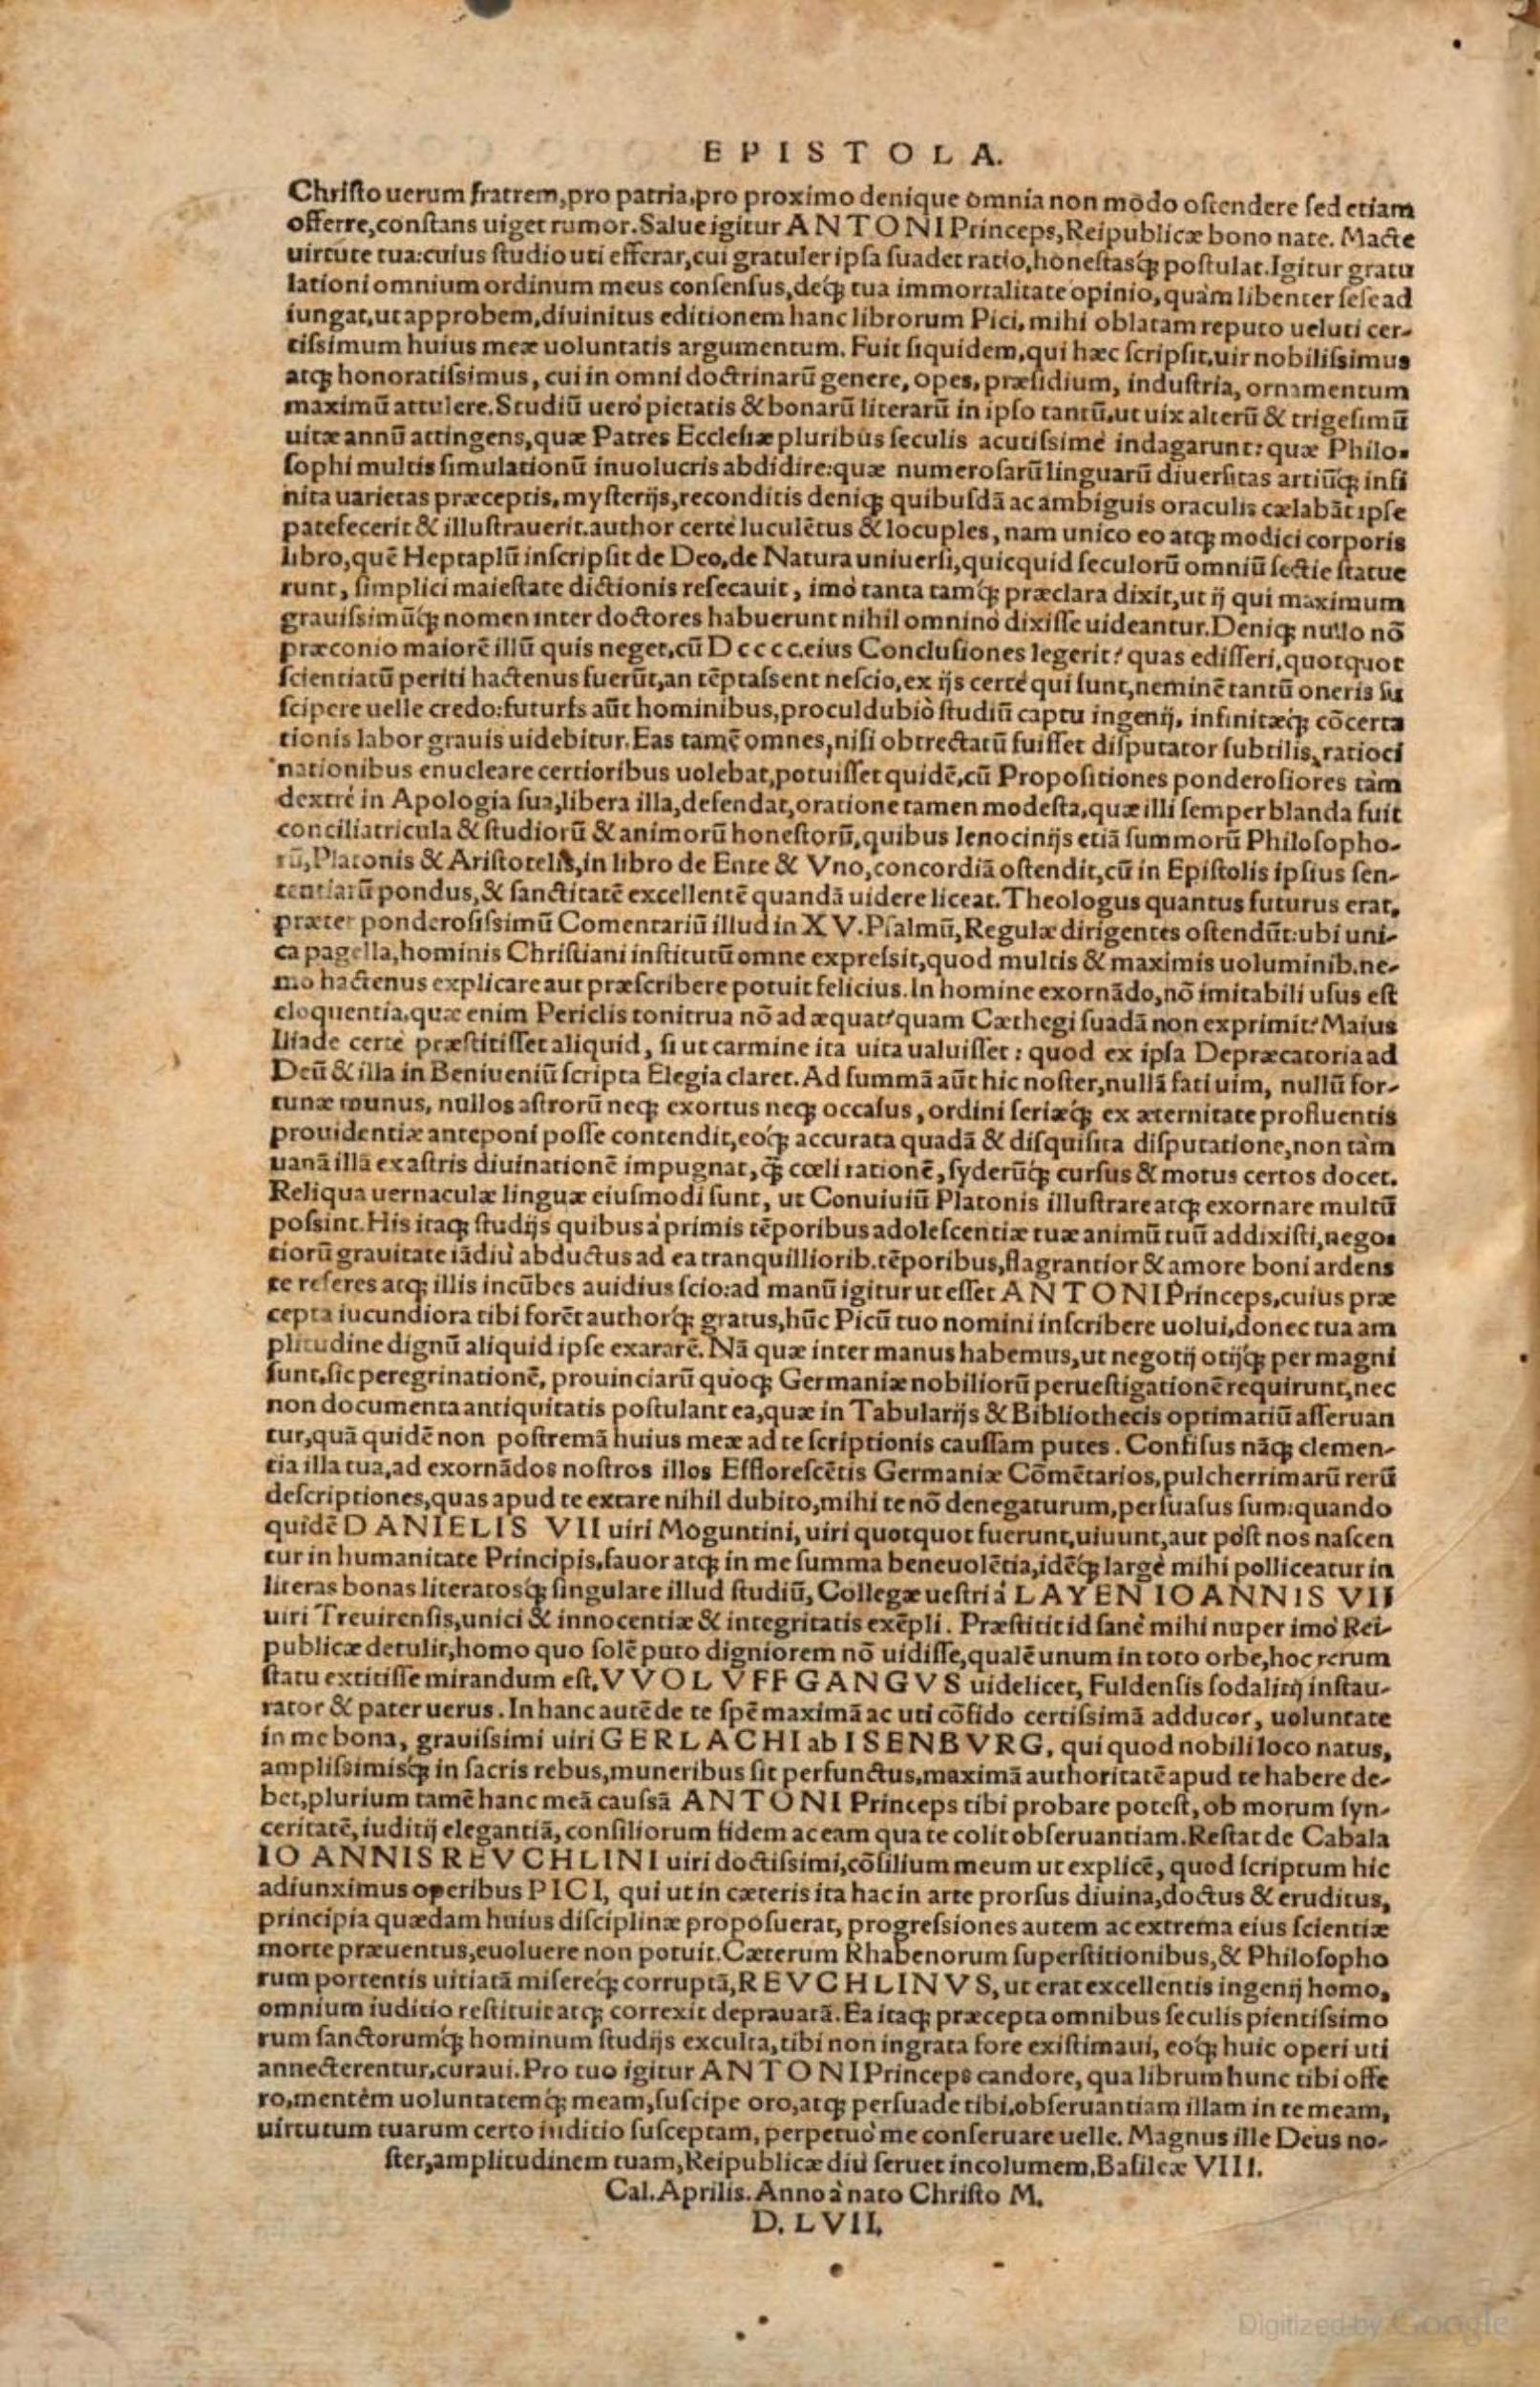 EPISTOLA.
Christo uerum fratrem, pro patria, pro proximo denique omnia non modo ostendere sed etiam
offerre, constans uiget rumor. Salue igitur ANTONI Princeps, Reipublicæ bono nate. Macte
uirtute tua: cuius studio uti efferar, cui gratuler ipsa suadet ratio, honestasq́; postulat. Igitur gratu
lationi omnium ordinum meus consensus, deq́; tua immortalitate opinio, quàm libenter sese ad
iungat, ut approbem, diuinitus editionem hanc librorum Pici, mihi oblatam reputo ueluti cer-
tissimum huius meæ uoluntatis argumentum. Fuit siquidem, qui hæc scripsit, uir nobilissimus
atq; honoratissimus, cui in omni doctrinarũ genere, opes, præsidium, industria, ornamentum
maximũ attulere. Studiũ uerò pietatis & bonarũ literarũ in ipso tantũ, ut uix alterũ & trigesimũ
uitæ annũ attingens, quæ Patres Ecclesiæ pluribus seculis acutissimè indagarunt: quæ Philo-
sophi multis simulationũ inuolucris abdidire: quæ numerosarũ linguarũ diuersitas artiũq́; infi
nita uarietas præceptis, mysterijs, reconditis deniq; quibusdã ac ambiguis oraculis cælabãt ipse
patefecerit & illustrauerit. author certè luculẽtus & locuples, nam unico eo atq; modici corporis
libro, quẽ Heptaplũ inscripsit de Deo, de Natura uniuersi, quicquid seculorũ omniũ sectie statue
runt, simplici maiestate dictionis resecauit, imò tanta tamq́; præclara dixit, ut ij qui maximum
grauissimũq́; nomen inter doctores habuerunt nihil omninò dixisse uideantur. Deniq; nullo nõ
præconio maiorẽ illũ quis neget, cũ Dcccc. eius Conclusiones legerit? quas edisseri, quotquot
scientiatũ periti hactenus fuerũt, an tẽptassent nescio, ex ijs certè qui sunt, neminẽ tantũ oneris su
scipere uelle credo: futuris aũt hominibus, proculdubiò studiũ captu ingenij, infinitæq́; cõcerta
tionis labor grauis uidebitur. Eas tamẽ omnes, nisi obtrectatũ fuisset disputator subtilis, ratioci
nationibus enucleare certioribus uolebat, potuisset quidẽ, cũ Propositiones ponderosiores tàm
dextrè in Apologia sua, libera illa, defendat, oratione tamen modesta, quæ illi semper blanda fuit
conciliatricula & studiorũ & animorũ honestorũ, quibus lenocinijs etiã summorũ Philosopho-
rũ, Platonis & Aristotelis, in libro de Ente & Vno, concordiã ostendit, cũ in Epistolis ipsius sen-
tentiarũ pondus, & sanctitatẽ excellentẽ quandã uidere liceat. Theologus quantus futurus erat,
præter ponderosissimũ Comentariũ illud in XV. Psalmũ, Regulæ dirigentes ostendũt: ubi uni-
ca pagella, hominis Christiani institutũ omne expressit, quod multis & maximis uoluminib. ne-
mo hactenus explicare aut præscribere potuit felicius. In homine exornãdo, nõ imitabili usus est
eloquentia, quæ enim Periclis tonitrua nõ adæquat? quam Cæthegi suadã non exprimit? Maius
Iliade certè præstitisset aliquid, si ut carmine ita uita ualuisset: quod ex ipsa Depræcatoria ad
Deũ & illa in Beniueniũ scripta Elegia claret. Ad summã aũt hic noster, nullã fati uim, nullũ for-
tunæ munus, nullos astrorũ neq; exortus neq; occasus, ordini seriæq́; ex æternitate profluentis
prouidentiæ anteponi posse contendit, eoq́; accurata quadã & disquisita disputatione, non tàm
uanã illã ex astris diuinationẽ impugnat, q̃ cœli rationẽ, syderũq́; cursus & motus certos docet.
Reliqua uernaculæ linguæ eiusmodi sunt, ut Conuiuiũ Platonis illustrare atq; exornare multũ
possint. His itaq; studijs quibus à primis tẽporibus adolescentiæ tuæ animũ tuũ addixisti, nego-
tiorũ grauitate iãdiu abductus ad ea tranquilliorib. tẽporibus, flagrantior & amore boni ardens
te referes atq; illis incũbes auidius scio: ad manũ igitur ut esset ANTONI Princeps, cuius præ
cepta iucundiora tibi forẽt authorq́; gratus, hũc Picũ tuo nomini inscribere uolui, donec tua am
plitudine dignũ aliquid ipse exararẽ. Nã quæ inter manus habemus, ut negotij otijq́; per magni
sunt, sic peregrinationẽ, prouinciarũ quoq; Germaniæ nobiliorũ peruestigationẽ requirunt, nec
non documenta antiquitatis postulant ea, quæ in Tabularijs & Bibliothecis optimatiũ asseruan
tur, quã quidẽ non postremã huius meæ ad te scriptionis caussam putes. Confisus nãq; clemen-
tia illa tua, ad exornãdos nostros illos Efflorescẽtis Germaniæ Cõmẽtarios, pulcherrimarũ rerũ
descriptiones, quas apud te extare nihil dubito, mihi te nõ denegaturum, persuasus sum: quando
quidẽ DANIELIS VII uiri Moguntini, uiri quotquot fuerunt, uiuunt, aut pòst nos nascen
tur in humanitate Principis, fauor atq; in me summa beneuolẽtia, idẽq́; largè mihi polliceatur in
literas bonas literatosq́; singulare illud studiũ, Collegæ uestri à LAYEN IOANNIS VII
uiri Treuirensis, unici & innocentiæ & integritatis exẽpli. Præstitit id sanè mihi nuper imò Rei-
publicæ detulit, homo quo solẽ puto digniorem nõ uidisse, qualẽ unum in toto orbe, hoc rerum
statu extitisse mirandum est, VVOLVFFGANGVS uidelicet, Fuldensis sodalitij instau-
rator & pater uerus. In hanc autẽ de te spẽ maximã ac uti cõfido certissimã adducor, uoluntate
in me bona, grauissimi uiri GERLACHI ab ISENBVRG, qui quod nobili loco natus,
amplissimisq́; in sacris rebus, muneribus sit perfunctus, maximã authoritatẽ apud te habere de-
bet, plurium tamẽ hanc meã caussã ANTONI Princeps tibi probare potest, ob morum syn-
ceritatẽ, iuditij elegantiã, consiliorum fidem ac eam qua te colit obseruantiam. Restat de Cabala
IOANNIS REVCHLINI uiri doctissimi, cõsilium meum ut explicẽ, quod scriptum hic
adiunximus operibus PICI, qui ut in cæteris ita hac in arte prorsus diuina, doctus & eruditus,
principia quædam huius disciplinæ proposuerat, progressiones autem ac extrema eius scientiæ
morte præuentus, euoluere non potuit. Cæterum Rhabenorum superstitionibus, & Philosopho
rum portentis uitiatã misereq́; corruptã, REVCHLINVS, ut erat excellentis ingenij homo,
omnium iuditio restituit atq; correxit deprauatã. Ea itaq; præcepta omnibus seculis pientissimo
rum sanctorumq́; hominum studijs exculta, tibi non ingrata fore existimaui, eoq́; huic operi uti
annecterentur, curaui. Pro tuo igitur ANTONI Princeps candore, qua librum hunc tibi offe
ro, mentem uoluntatemq́; meam, suscipe oro, atq; persuade tibi, obseruantiam illam in te meam,
uirtutum tuarum certo iuditio susceptam, perpetuò me conseruare uelle. Magnus ille Deus no-
ster, amplitudinem tuam, Reipublicæ diù seruet incolumem, Basileæ VIII.
Cal. Aprilis. Anno à nato Christo M.
D. LVII.
Digitized by Google